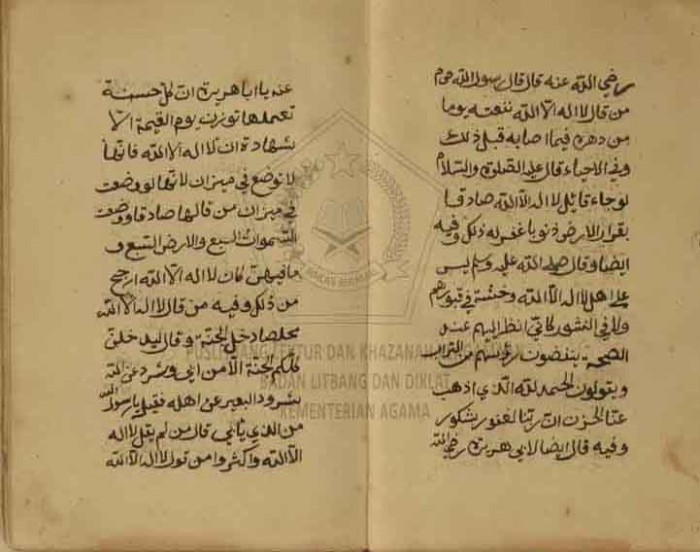 رضي الله عنه قال قال رسول الله صوم
من قال لا اله الا الله نفعته يوما
من دهره فيما اصابه قبل ذلك
وفي الاحياء قال عليه الصلوة والسلام
لو جاء قائل لا اله الا الله صادقا
بقرار الارض ذنوبا غفر له ذلك وفيه
ايضا وقال صلى الله عليه وسلم ليس
على اهل لا اله الا الله وحشة في قبورهم
ولا في النشور كاني انظر اليهم عند
الصيحة ينفضون رؤسهم من التراب
ويقولون الحمد لله الذي اذهب
عنا الحزن ان ربنا لغفور شكور
وفيه قال ايضا لابي هريرة رضي الله
عنه يا ابا هريرة ان كل حسنة
تعملها توزن يوم القيمة الا
شهادة ان لا اله الا الله فانها
لا توضع في ميزان لانها لو وضعت
في ميزان من قالها صادقا ووضعت
السموات السبع والارض السبع و
ما فيهن كان لا اله الا الله ارجح
من ذلك وفيه من قال لا اله الا الله
مخلصا دخل الجنة وقال ليدخلن
كلكم الجنة الا من ابى وشرد عن الله
شرود البعير عن اهله فقيل يا رسول الله
من الذي يأبى قال من لم يقل لا اله
الا الله واكثروا من قول لا اله الا الله
PUSLITBANG LEKTUR DAN KHAZANAH KEAGAMAAN
BADAN LITBANG DAN DIKLAT
KEMENTERIAN AGAMA